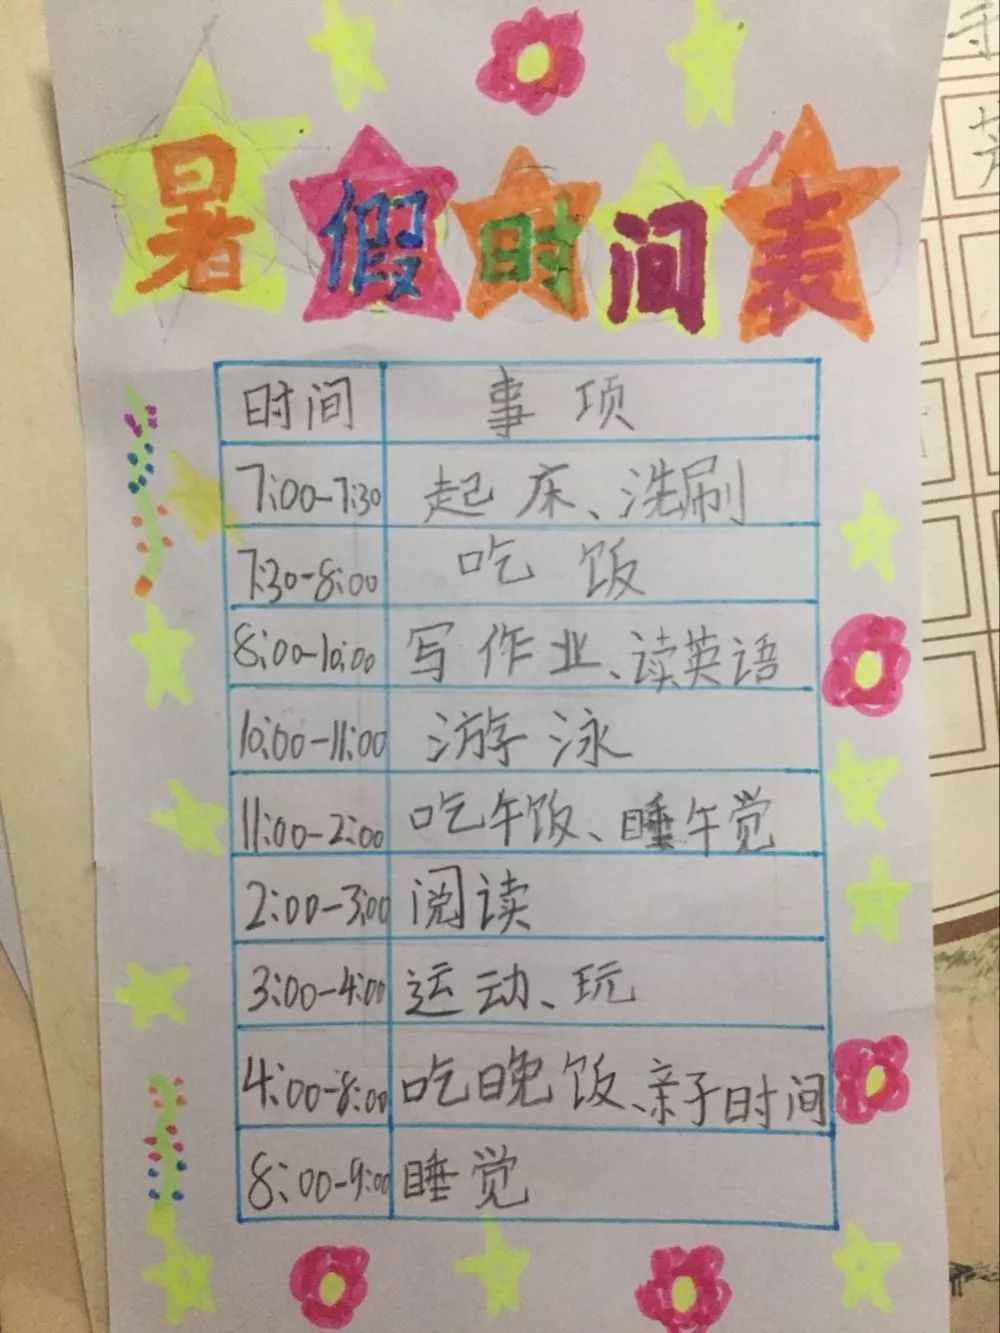 暑假时间表
时间 事项
7:00-7:30 起床、洗刷
7:30-8:00 吃饭
8:00-10:00 写作业、读英语
10:00-11:00 游泳
11:00-2:00 吃午饭、睡午觉
2:00-3:00 阅读
3:00-4:00 运动、玩
4:00-8:00 吃晚饭、亲子时间
8:00-9:00 睡觉